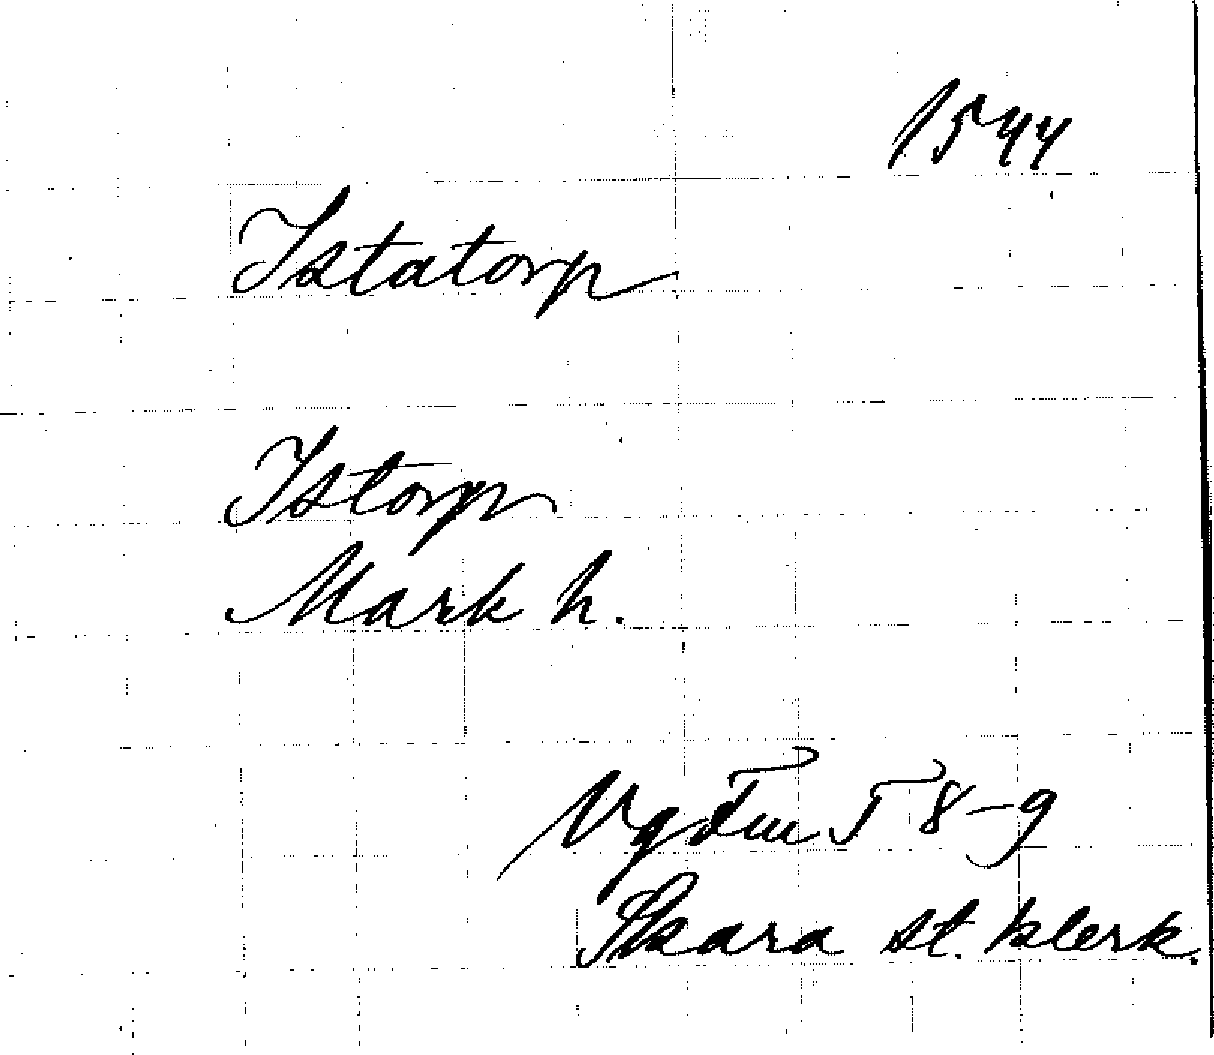 1544
Istatorp
Istorp
Mark h.
VgFm I 8-9
Skara st. klerk.